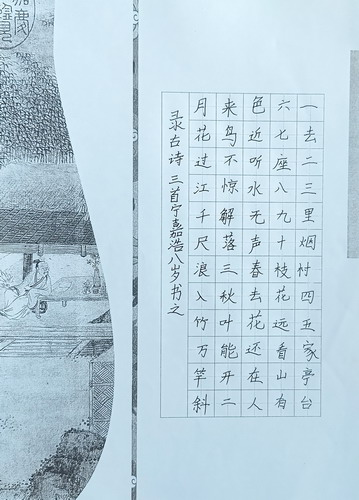 一去二三里烟村四五家亭台
六七座八九十枝花远看山有
色近听水无声春去花还在人
来鸟不惊解落三秋叶能开二
月花过江千尺浪入竹万竿斜
录古诗三首宁嘉浩八岁书之
嘉慶